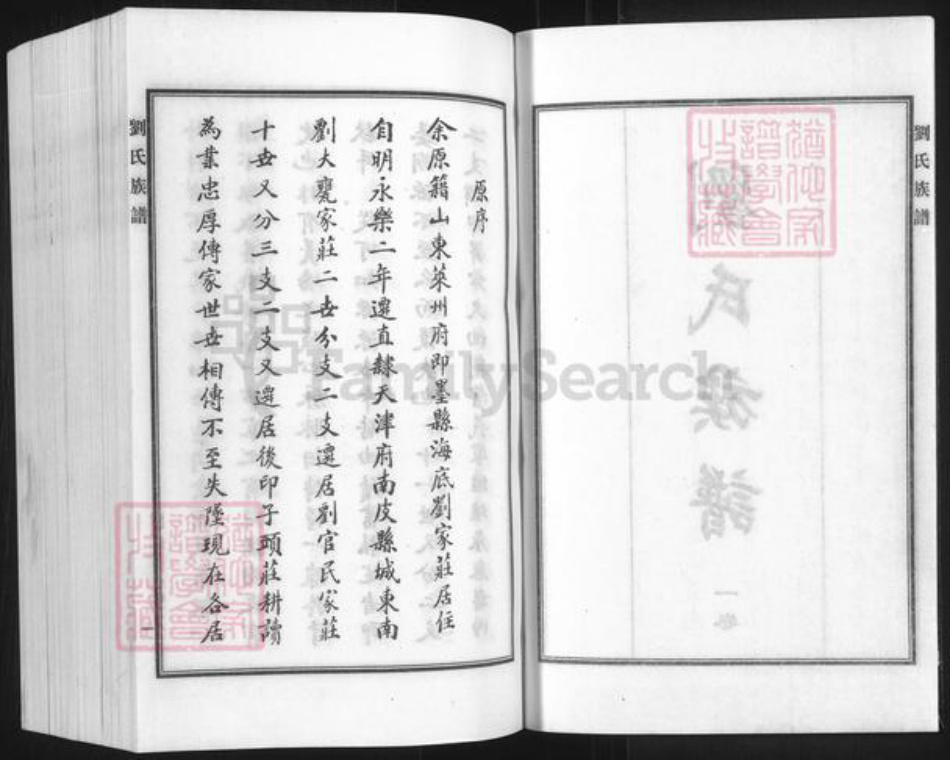 劉氏族譜
原序
余原籍山東萊州府即墨縣海底劉家莊居住
自明永樂二年遷直隸天津府南皮縣城東南
劉大甕家莊二世分支二支遷居劉官民家莊
十世又分三支二支又遷居後印子頭莊耕讀
為業忠厚傳家世世相傳不至失墜現在各居
劉氏族譜
一
氏族譜
一卷
猶他家譜學會收藏
猶他家譜學會收藏
FamilySearch